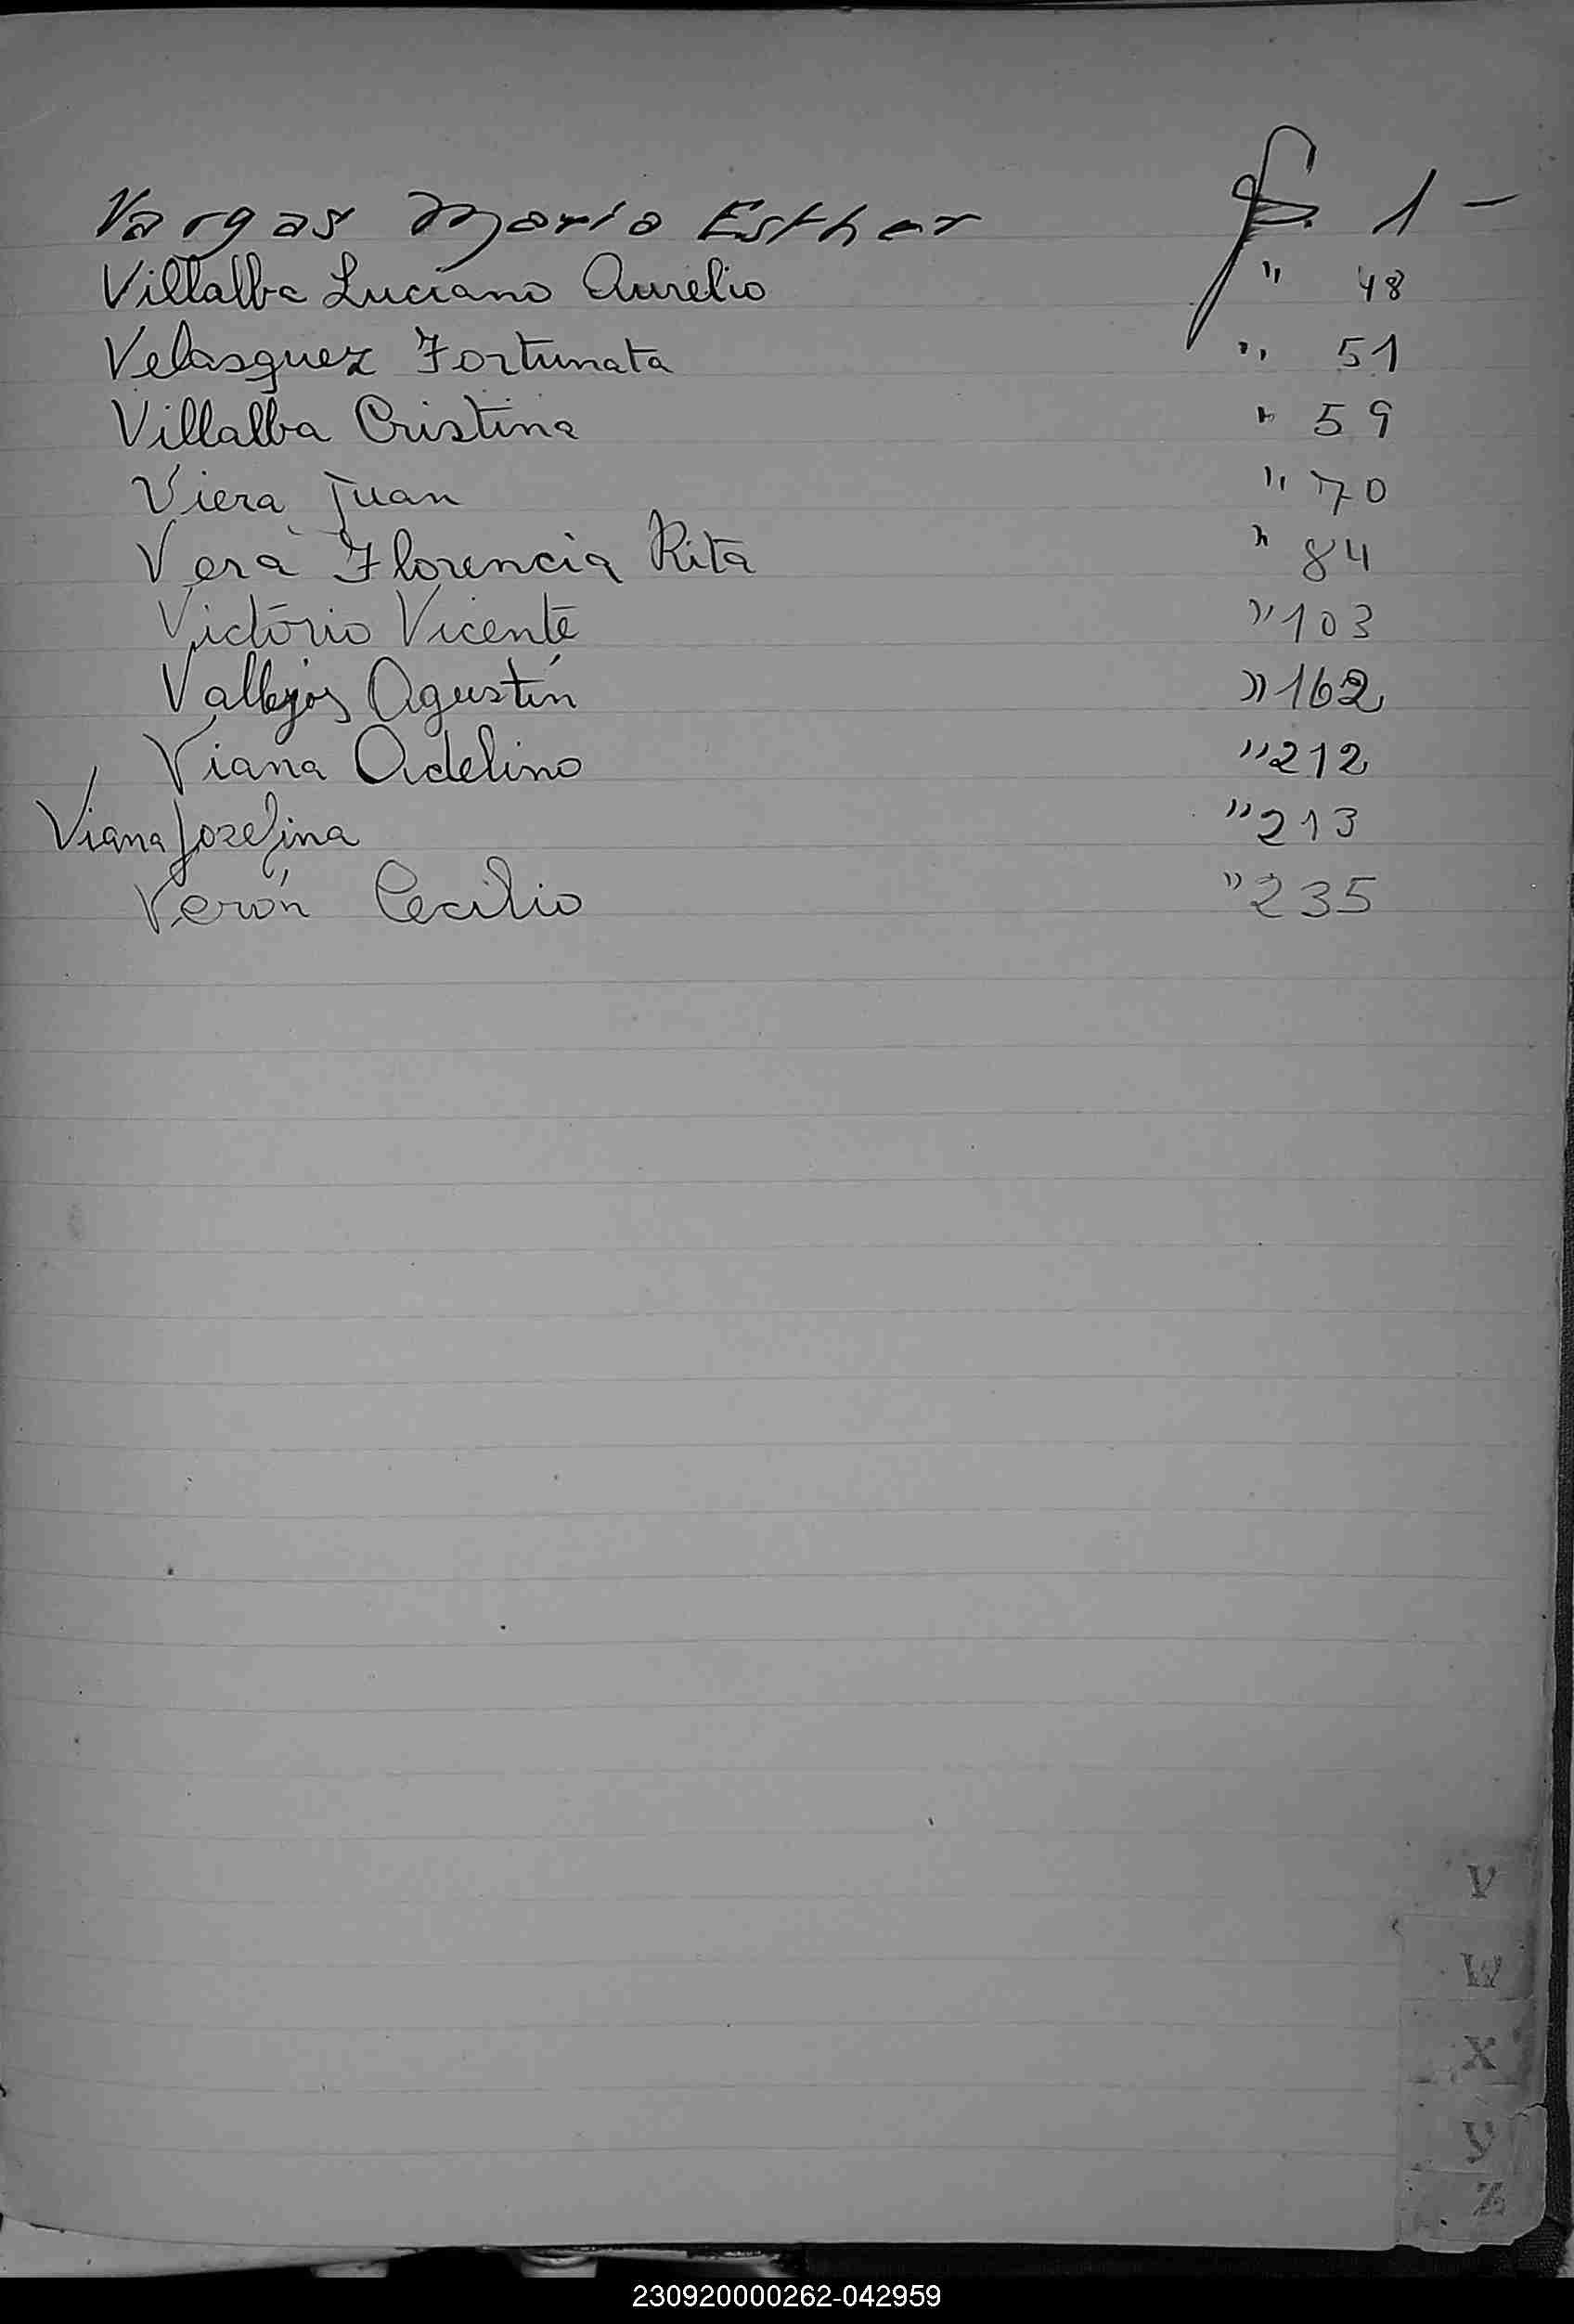 Vargas Maria Esther Fº. 1 -
Villalba Luciano Aurelio " 48
Velasquez Fortunata " 51
Villalba Cristina " 59
Viera Juan " 70
Vera Florencia Rita " 84
Victório Vicente " 103
Vallejos Agustín " 162
Viana Adelino " 212
Viana Josefina " 213
Verón Cecilio " 235
V
W
X
Y
Z
230920000262-042959